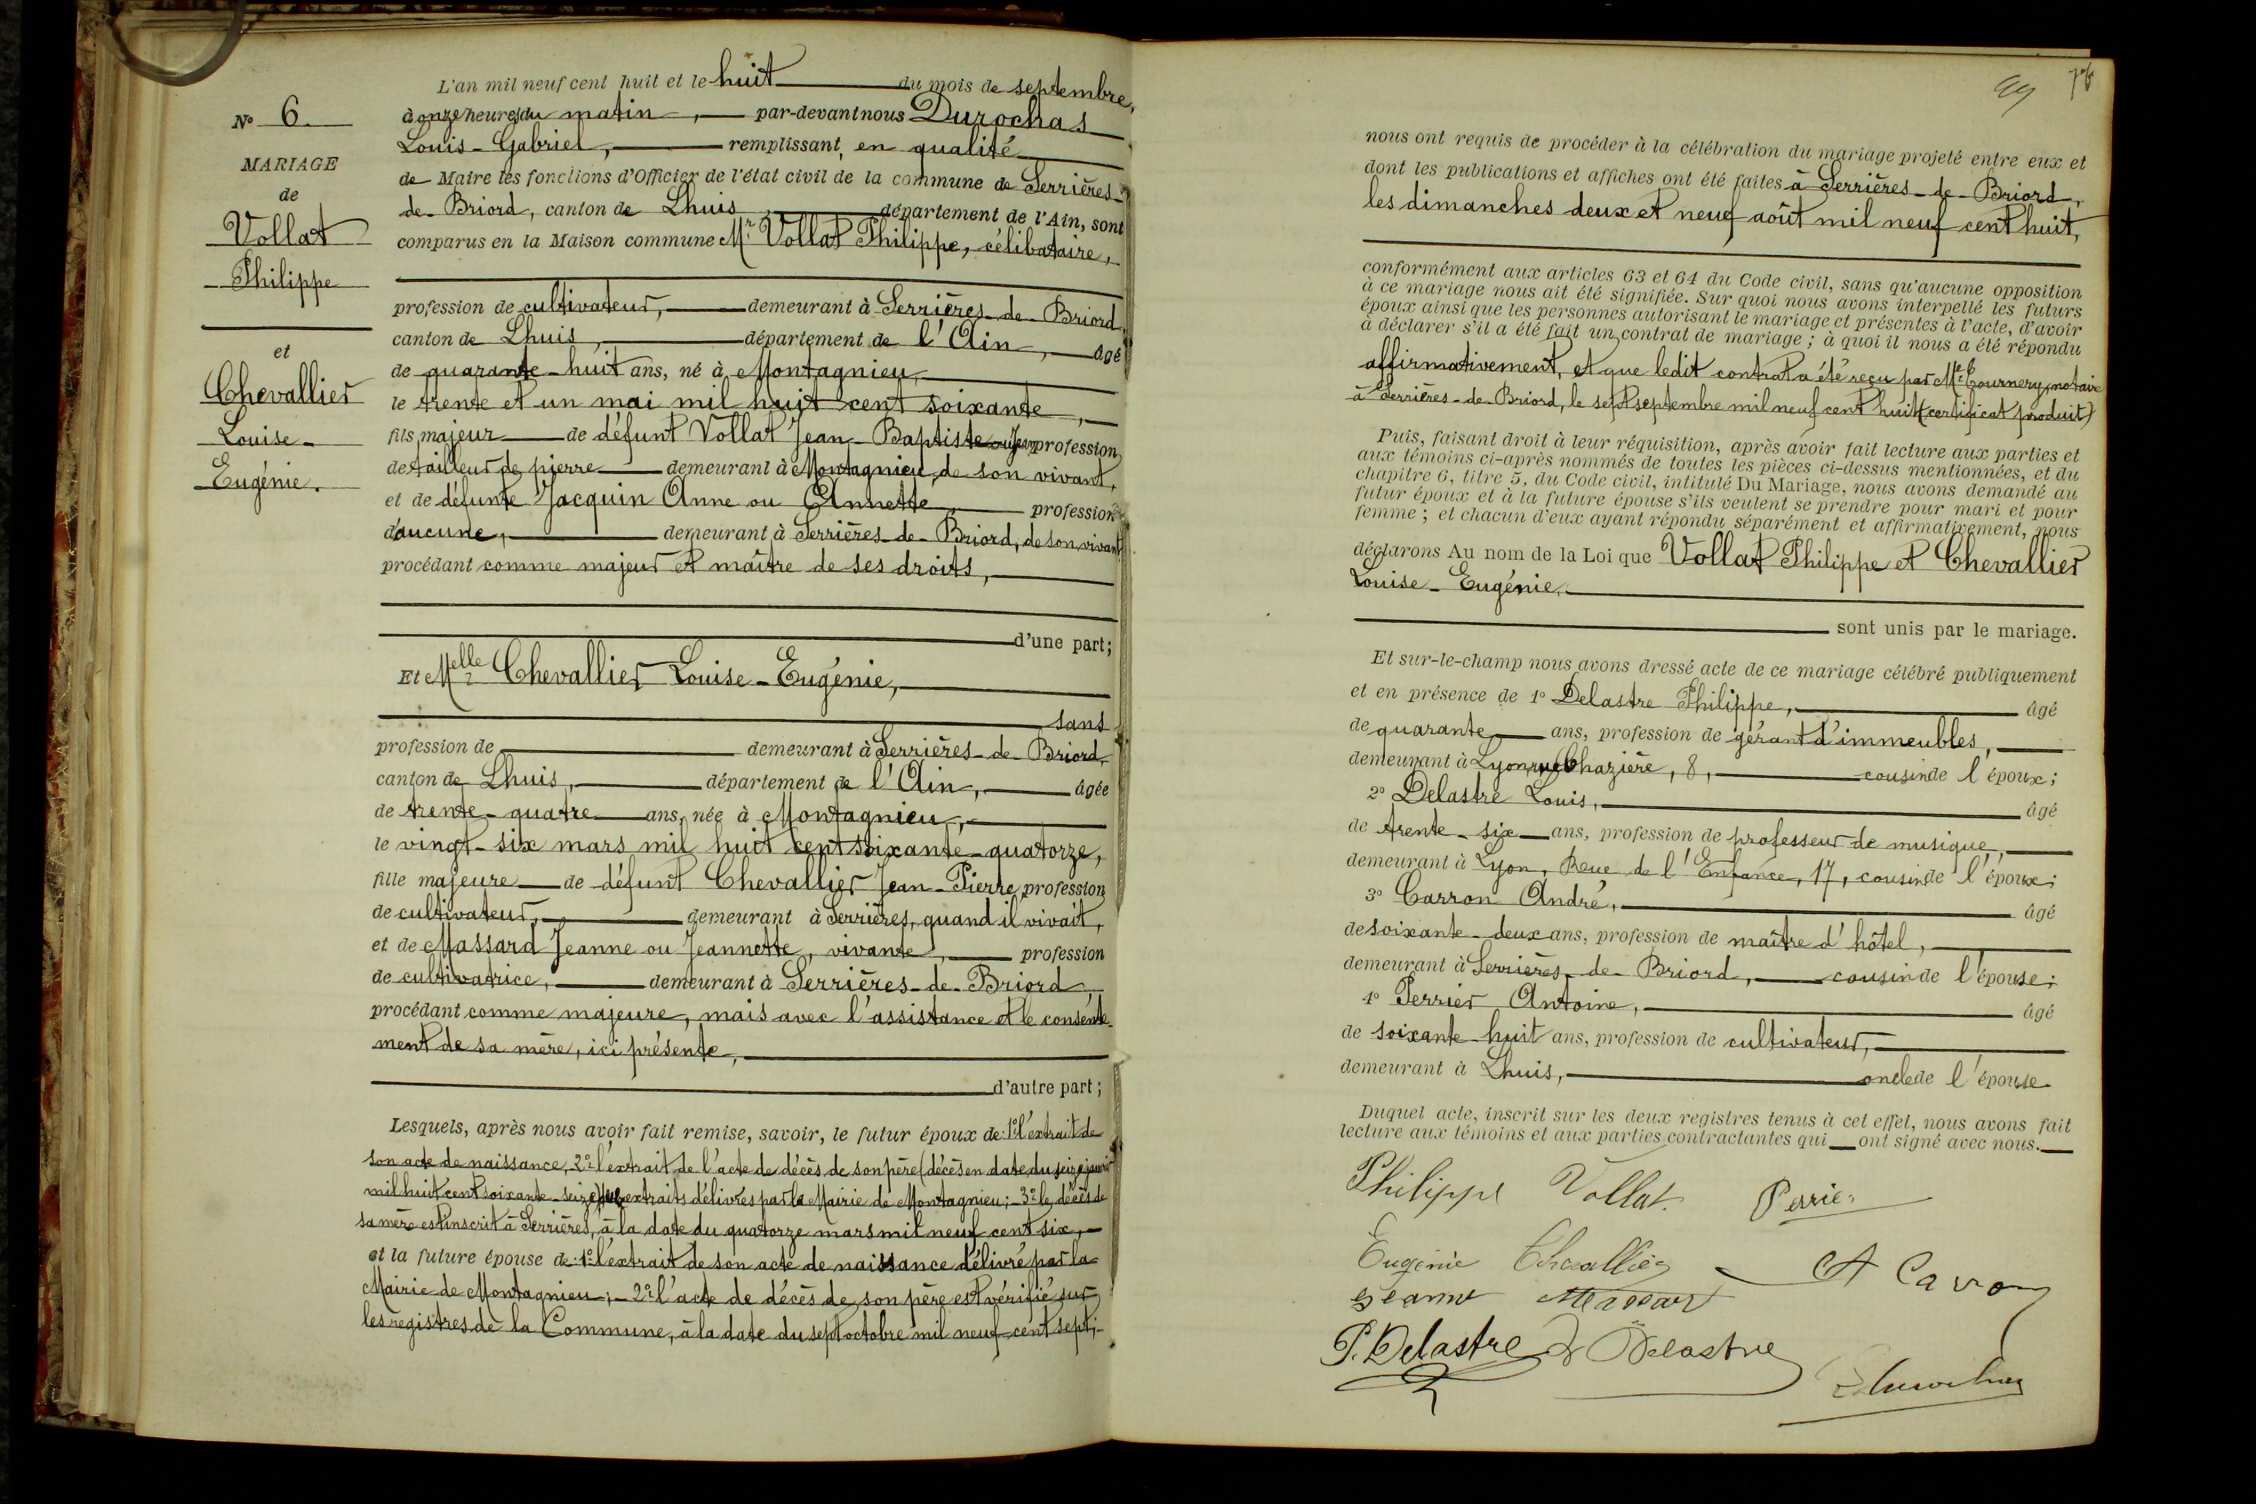 N° 6.
MARIAGE
de
Vollat
Philippe
et
Chevallier
Louise-
Eugénie.
L'an mil neuf cent huit et le huit du mois de septembre,
à onze heures du matin, par-devant nous Durochas
Louis-Gabriel, remplissant, en qualité
de Maire les fonctions d'Officier de l'état civil de la commune de Serrières-
de-Briord, canton de Lhuis, département de l'Ain, sont
comparus en la Maison commune Mr Vollat Philippe, célibataire,
profession de cultivateur, demeurant à Serrières-de-Briord,
canton de Lhuis, département de l'Ain, âgé
de quarante-huit ans, né à Montagnieu,
le trente et un mai mil huit cent soixante,
fils majeur de défunt Vollat Jean-Baptiste ou Jean, profession
de tailleur de pierre demeurant à Montagnieu, de son vivant,
et de défunte Jacquin Anne ou Annette, profession
d'aucune, demeurant à Serrières-de-Briord, de son vivant,
procédant comme majeur et maître de ses droits,
d'une part;
Et Melle Chevallier Louise-Eugénie,
sans
profession de demeurant à Serrières-de-Briord,
canton de Lhuis, département de l'Ain, âgée
de trente-quatre ans, née à Montagnieu,
le vingt-six mars mil huit cent soixante-quatorze,
fille majeure de défunt Chevallier Jean-Pierre, profession
de cultivateur, demeurant à Serrières, quand il vivait,
et de Massard Jeanne ou Jeannette, vivante, profession
de cultivatrice, demeurant à Serrières-de-Briord,
procédant comme majeure, mais avec l'assistance et le consente-
ment de sa mère, ici présente,
d'autre part;
Lesquels, après nous avoir fait remise, savoir, le futur époux de: 1° l'extrait de
son acte de naissance, 2° l'extrait de l'acte de décès de son père (décès en date du seize janvier
mil huit cent soixante-seize) extraits délivrés par la Mairie de Montagnieu;- 3° le décès de
sa mère est inscrit à Serrières, à la date du quatorze mars mil neuf cent six,-
et la future épouse de: 1° l'extrait de son acte de naissance délivré par la
Mairie de Montagnieu;- 2° l'acte de décès de son père est vérifié sur
les registres de la Commune, à la date du sept octobre mil neuf cent sept;-
99 76
nous ont requis de procéder à la célébration du mariage projeté entre eux et
dont les publications et affiches ont été faites à Serrières-de-Briord,
les dimanches deux et neuf août mil neuf cent huit,
conformément aux articles 63 et 64 du Code civil, sans qu'aucune opposition
à ce mariage nous ait été signifiée. Sur quoi nous avons interpellé les futurs
époux ainsi que les personnes autorisant le mariage et présentes à l'acte, d'avoir
à déclarer s'il a été fait un contrat de mariage; à quoi il nous a été répondu
affirmativement, et que ledit contrat a été reçu par Me Tournery, notaire
à Serrières-de-Briord, le sept septembre mil neuf cent huit (certificat produit)
Puis, faisant droit à leur réquisition, après avoir fait lecture aux parties et
aux témoins ci-après nommés de toutes les pièces ci-dessus mentionnées, et du
chapitre 6, titre 5, du Code civil, intitulé Du Mariage, nous avons demandé au
futur époux et à la future épouse s'ils veulent se prendre pour mari et pour
femme; et chacun d'eux ayant répondu séparément et affirmativement, nous
déclarons Au nom de la Loi que Vollat Philippe et Chevallier
Louise-Eugénie,
sont unis par le mariage.
Et sur-le-champ nous avons dressé acte de ce mariage célébré publiquement
et en présence de 1° Delastre Philippe, âgé
de quarante ans, profession de gérant d'immeubles,
demeurant à Lyon, rue Chazière, 8, cousin de l'époux;
2° Delastre Louis, âgé
de trente-six ans, profession de professeur de musique,
demeurant à Lyon, Rue de l'Enfance, 17, cousin de l'époux;
3° Carron André, âgé
de soixante-deux ans, profession de maître d'hôtel,
demeurant à Serrières-de-Briord, cousin de l'épouse;
4° Perrier Antoine, âgé
de soixante-huit ans, profession de cultivateur,
demeurant à Lhuis, oncle de l'épouse
Duquel acte, inscrit sur les deux registres tenus à cet effet, nous avons fait
lecture aux témoins et aux parties contractantes qui ont signé avec nous.
Philippe Vollat. Perrier
Eugénie Chevallier A Caron
Jeanne Massard
P. Delastre L Delastre
Durochas